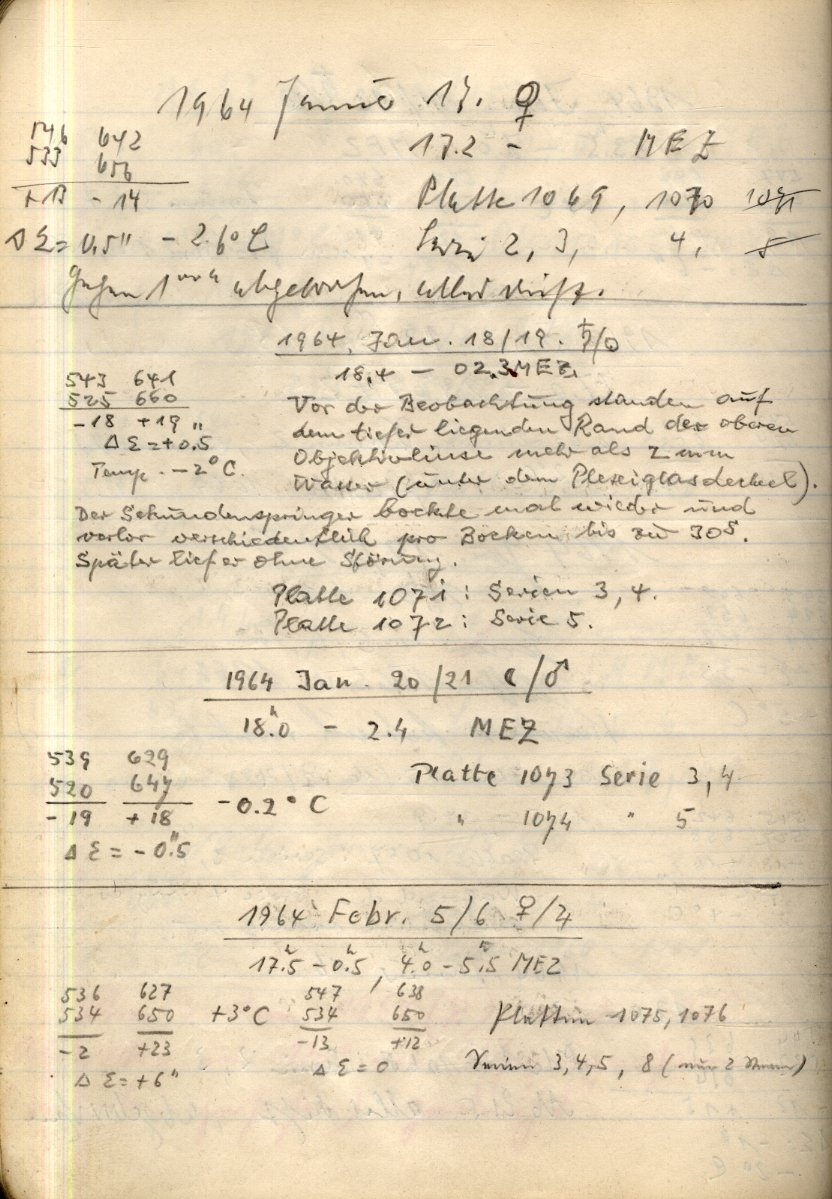 1964 Januar 17. ♀
546 642 17.2 - MEZ
533 656
+13 - 14 Platte 1069, 1070 1071
Δ Σ = 0.5" - 2.6° C Serie 2, 3, 4, 5
Gegen 1 Uhr abgebrochen, alles
1964 Jan. 18/19. ♄/☉
18.4 - 02.3 MEZ
543 641
525 660
-18 +19
Δ Σ = +0.5"
Temp. -2°C.
Vor der Beobachtung standen auf
dem tiefer liegenden Rand der oberen
Objektivlinse mehr als 2 mm
Wasser (unter dem Plexiglasdeckel).
Der Sekundenspringer bockte mal wieder und
verlor verschiedentlich pro Bocken bis zu 30s.
Später lief er ohne Störung.
Platte 1071: Serien 3, 4.
Platte 1072: Serie 5.
1964 Jan. 20/21 ☾/♂
18.h0 - 2.4 MEZ
539 629
520 647
-19 +18 -0.2° C
Δ Σ = -0."5
Platte 1073 Serie 3, 4
" 1074 " 5
1964 Febr. 5/6 ♀/♃
17.h5 - 0.h5, 4.h0 - 5.h5 MEZ
536 627 547 638
534 650 +3°C 534 650
-2 +23 -13 +12
Δ Σ = +6" Δ Σ = 0
Platten 1075, 1076
Serien 3, 4, 5, 8 (nur 2 Sterne)